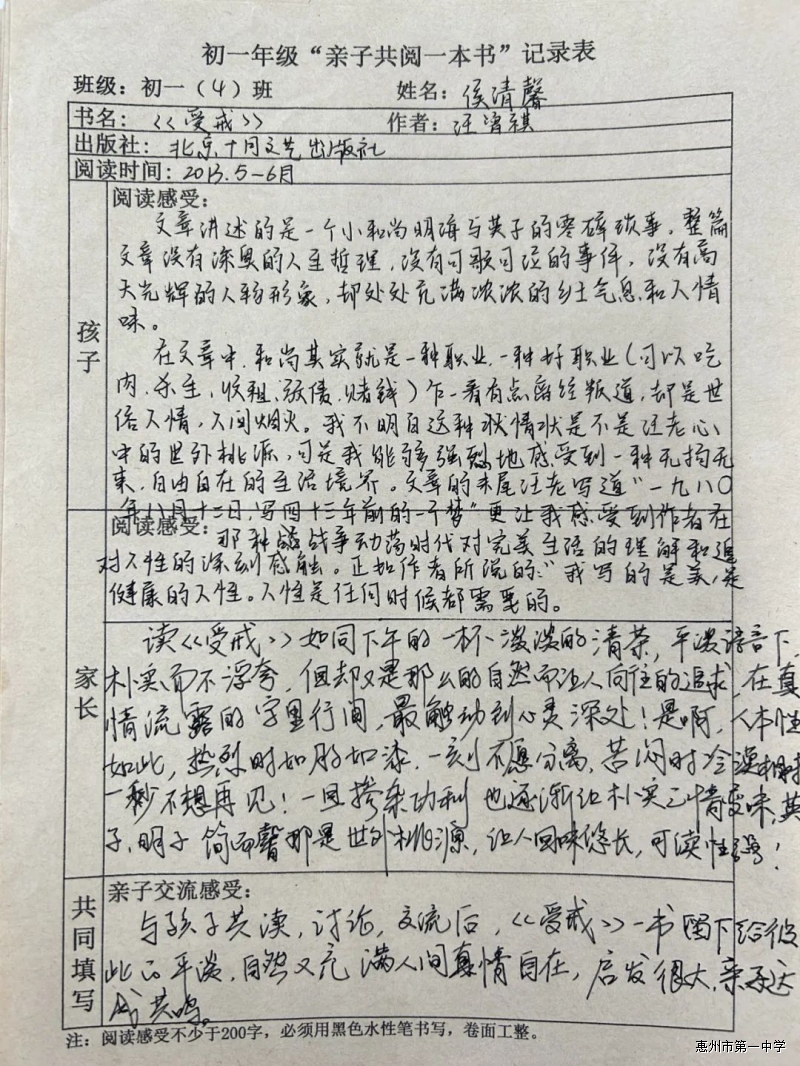 初一年级“亲子共阅一本书”记录表
班级：初一（4）班 姓名：侯清馨
书名：《受戒》 作者：汪曾祺
出版社：北京十月文艺出版社
阅读时间：2013.5-6月
孩子
阅读感受：
文章讲述的是一个小和尚明海与英子的零碎琐事，整篇
文章没有深奥的人生哲理，没有可歌可泣的事件，没有高
大光辉的人物形象，却处处充满浓浓的乡土气息和人情
味。
在文章中，和尚其实就是一种职业，一种好职业（可以吃
肉、杀生、收租、放债、赌钱）乍一看有点离经叛道，却是世
俗人情，人间烟火。我不明白这种状情状是不是汪老心
中的世外桃源，可是我能够强烈地感受到一种无拘无
束，自由自在的生活境界。文章的末尾汪老写道“一九八〇
年八月十二日，写四十三年前的一个梦”更让我感受到作者在
家长
阅读感受：
那种战争动荡时代对完美生活的理解和追
对人性的深刻感触。正如作者所说的：“我写的是美，是
健康的人性。人性是任何时候都需要的。
读《受戒》如同下午的一杯淡淡的清茶，平淡谚言下，
朴实而不浮夸，但却又是那么的自然而让人向往的追求，在真
情流露的字里行间，最触动到心灵深处！是啊，人本性
如此，热烈时如胶如漆，一刻不愿分离，苦闷时冷漠相对
一秒不想再见！一旦掺杂功利也逐渐让朴实之情变味，英
子、明子简而馨那是世外桃源，让人回味悠长，可读性强！
共同填写
亲子交流感受：
与孩子共读，讨论，交流后，《受戒》一书留下给彼
此的平淡，自然又充满人间真情自在，启发很大，亲子达
成共鸣。
注：阅读感受不少于200字，必须用黑色水性笔书写，卷面工整。
惠州市第一中学